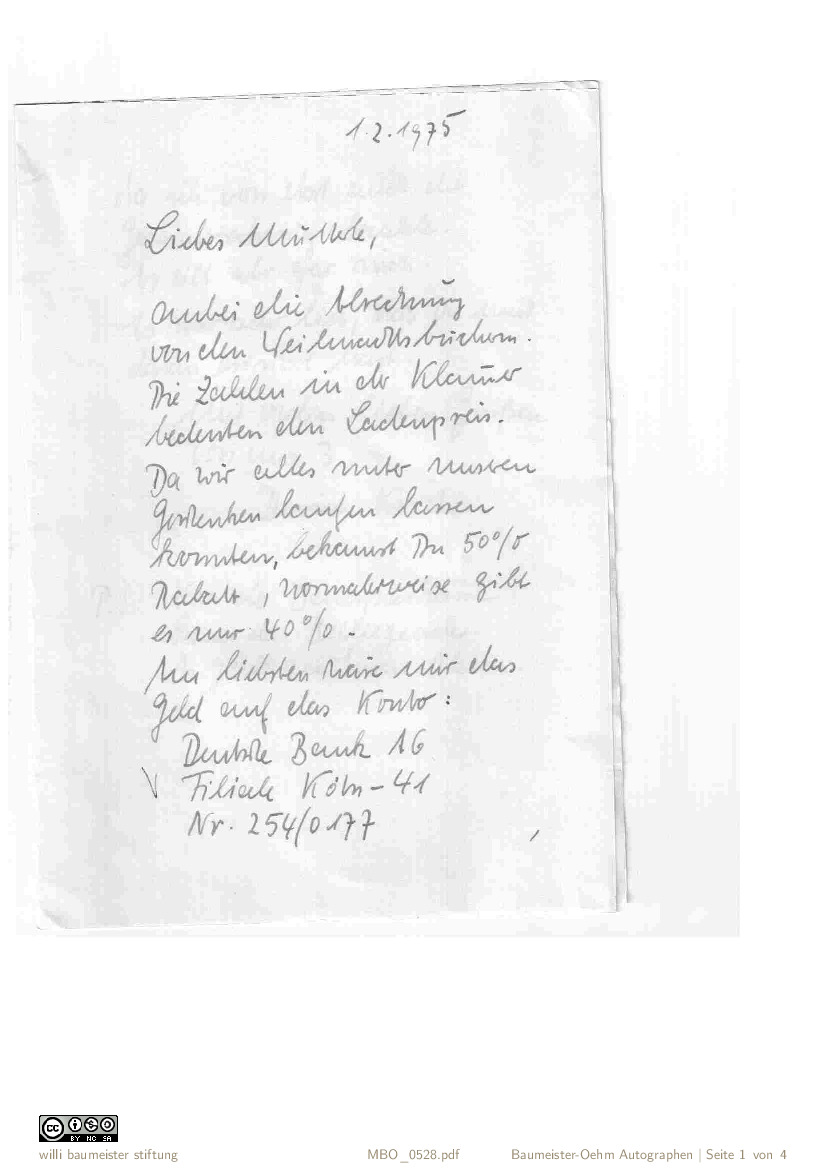 1.2.1975
Liebes Mütterle,
anbei die Abrechnung
von den Weihnachtsbüchern.
Die Zahlen in der Klam̄er
bedeuten den Ladenpreis.
Da wir alles unter unseren
Geschenken laufen lassen
konnten, bekamst Du 50%
Rabatt, normalerweise gibt
es nur 40%.
Am liebsten wäre mir das
Geld auf das Konto:
Deutsche Bank AG
Filiale Köln-41
Nr. 254/0177
BY NC SA
willi baumeister stiftung
MBO_0528.pdf
Baumeister-Oehm Autographen | Seite 1 von 4